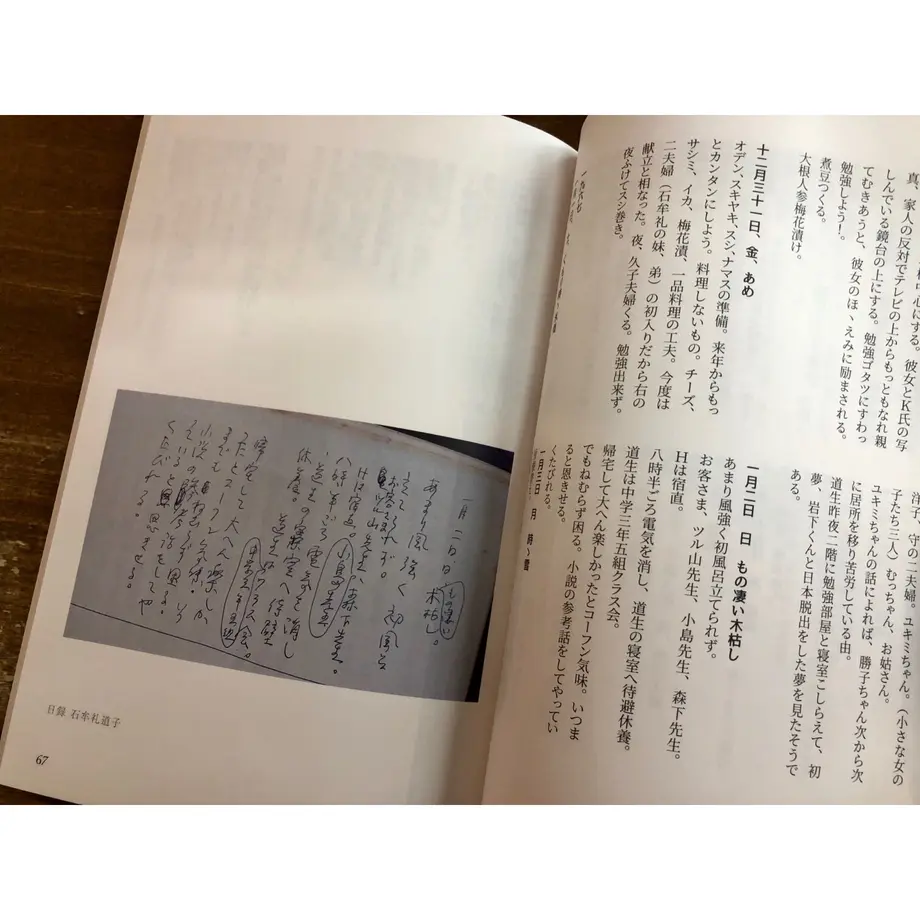 中心にする。彼女とK氏の写
真　家人の反対でテレビの上からもっともなれ親
しんでいる鏡台の上にする。勉強ゴタツにすわっ
てむきあうと、彼女のほゝえみに励まされる。
勉強しよう！。
煮豆つくる。
大根人参梅花漬け。
十二月三十一日、金、あめ
オデン、スキヤキ、スシ、ナマスの準備。来年からもっ
とカンタンにしよう。料理しないもの。チーズ、
サシミ、イカ、梅花漬、一品料理の工夫。今度は
二夫婦（石牟礼の妹、弟）の初入りだから右の
献立と相なった。夜、久子夫婦くる。勉強出来ず。
夜ふけてスシ巻き。
一九六七
治子、守の二夫婦。ユキミちゃん。（小さな女の
子たち三人）むっちゃん、お姑さん。
ユキミちゃんの話によれば、勝子ちゃん次から次
に居所を移り苦労している由。
道生昨夜二階に勉強部屋と寝室こしらえて、初
夢、岩下くんと日本脱出をした夢を見たそうで
ある。
一月二日　日　もの凄い木枯し
あまり風強く初風呂立てられず。
お客さま、ツル山先生、小島先生、森下先生。
Hは宿直。
八時半ごろ電気を消し、道生の寝室へ待避休養。
道生は中学三年五組クラス会。
帰宅して大へん楽しかったとコーフン気味。いつま
でもねむらず困る。小説の参考話をしてやってい
ると恩きせる。
くたびれる。
一月三日　月　時々雪
一月二日日もの凄い
木枯し。
あまり風強く初風呂
立てられず。
お客さま
山先生、森下先生。
小島先生
Hは宿直。
八時半ごろ電気を消し
道生の寝室へ待避
休養。
道生はクラス会。
中学三年五組
帰宅して大へん楽しか
ったとコーフン気味。いつ
までも
困る。
小説の参考話をしてや
っていると恩きせる。
くたびれる。
日録 石牟礼道子
67